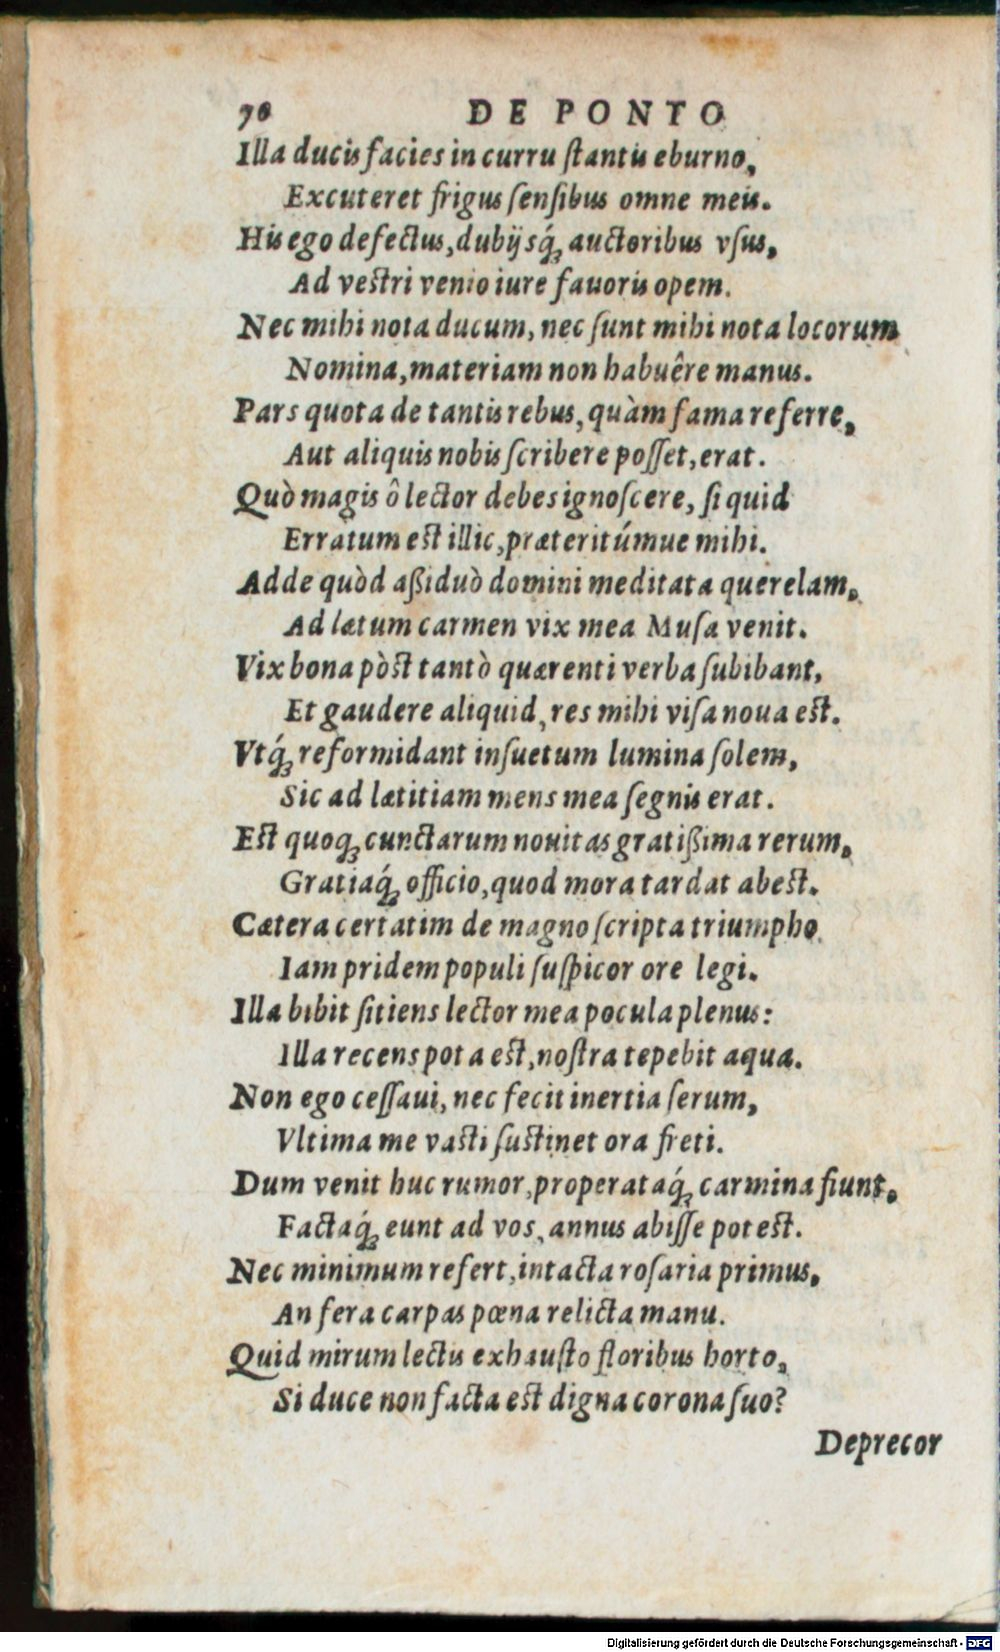 70 DE PONTO
Illa ducis facies in curru ſtantis eburno,
Excuteret frigus ſenſibus omne meis.
His ego defectus, dubijsq́; auctoribus vſus,
Ad veſtri venio iure fauoris opem.
Nec mihi nota ducum, nec ſunt mihi nota locorum
Nomina, materiam non habuêre manus.
Pars quota de tantis rebus, quàm fama referre,
Aut aliquis nobis ſcribere poſſet, erat.
Quò magis ô lector debes ignoſcere, ſi quid
Erratum eſt illic, præteritúmue mihi.
Adde quòd aßiduò domini meditata querelam,
Ad lætum carmen vix mea Muſa venit.
Vix bona pòſt tantò quærenti verba ſubibant,
Et gaudere aliquid, res mihi viſa noua eſt.
Vtq́; reformidant inſuetum lumina ſolem,
Sic ad lætitiam mens mea ſegnis erat.
Eſt quoq; cunctarum nouitas gratißima rerum,
Gratiaq́; officio, quod mora tardat abeſt.
Cætera certatim de magno ſcripta triumpho
Iam pridem populi ſuſpicor ore legi.
Illa bibit ſitiens lector mea pocula plenus:
Illa recens pota eſt, noſtra tepebit aqua.
Non ego ceſſaui, nec fecit inertia ſerum,
Vltima me vaſti ſuſtinet ora freti.
Dum venit huc rumor, properataq́; carmina fiunt,
Factaq́; eunt ad vos, annus abiſſe poteſt.
Nec minimum refert, intacta roſaria primus,
An fera carpas pœna relicta manu.
Quid mirum lectis exhauſto floribus horto,
Si duce non facta eſt digna corona ſuo?
Deprecor
Digitalisierung gefördert durch die Deutsche Forschungsgemeinschaft - DFG